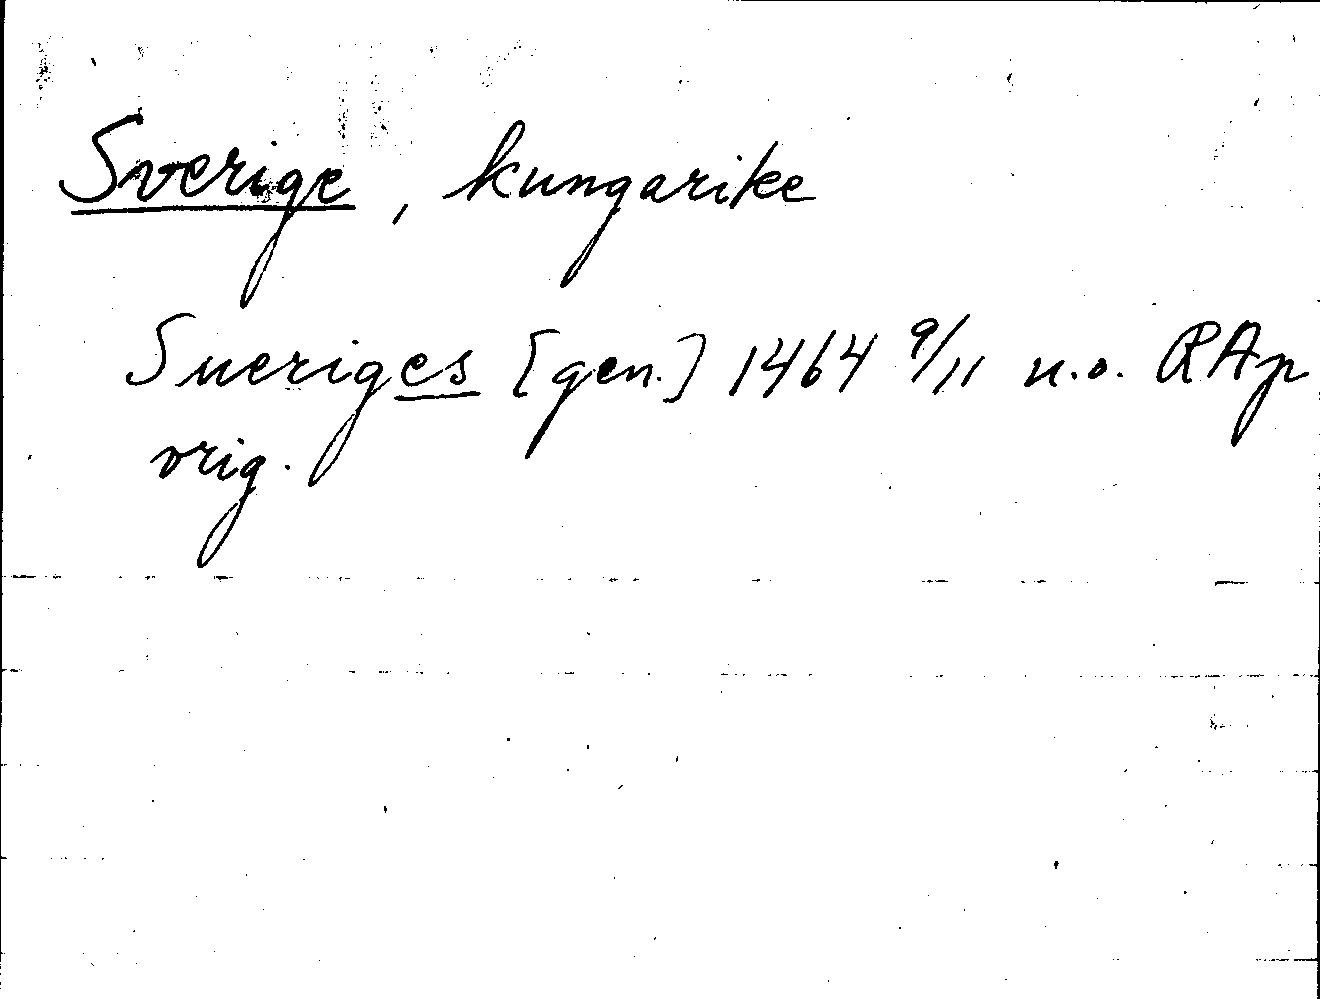 Sverige, kungarike
Sueriges [gen.] 1464 9/11 u.o. RAp
orig.